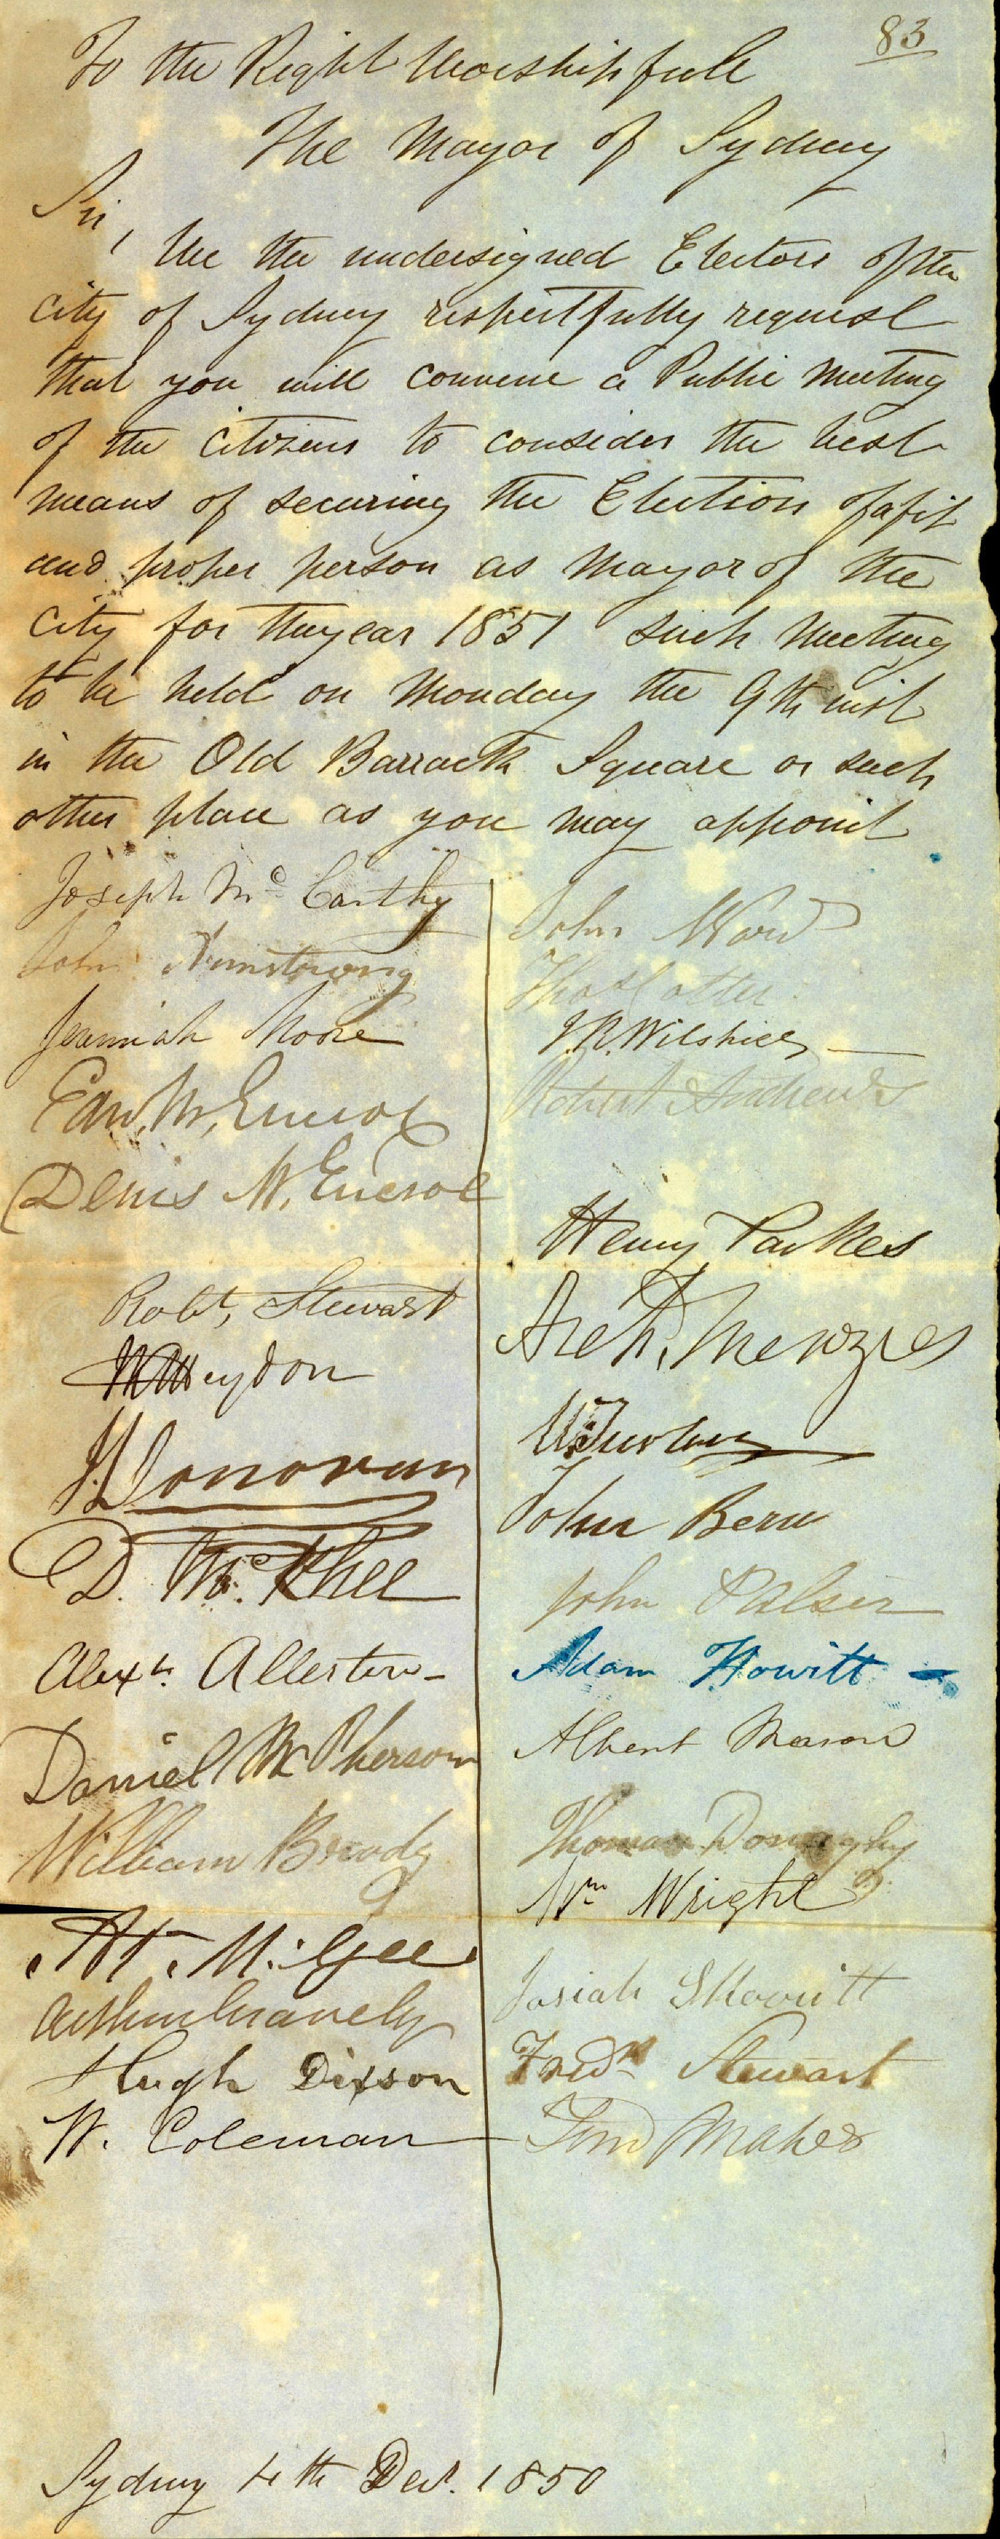 83
To the Right Worshipfull
The Mayor of Sydney
Sir,
We the undersigned Electors of the
city of Sydney respectfully request
that you will convene a Public Meeting
of the citizens to consider the best
means of securing the Election of a fit
and proper person as Mayor of the
City for the year 1851 such Meeting
to be held on Monday the 9th inst
in the Old Barrack Square or such
other place as you may appoint
Joseph McCarthy
John Armstrong
Jeremiah Moore
Edw. M, Encroe
Denis M, Encroe
Robt, Stewart
Heydon
J. Donovan
D. McKhee
Alexr. Allerton
Daniel McPherson
William Brody
M. Gee
Arthur
Hugh Dixson
W. Coleman
John Ward
Thos Cotter
J.R. Wilshire
Robert Andrews
Henry Parkes
Archd. Menzies
John Bern
John Palser
Adam Howitt
Albert Mason
Thomas Donaghy
Wm Wright
Josiah Howitt
Fredk Stewart
Maher
Sydney 4th Decr. 1850